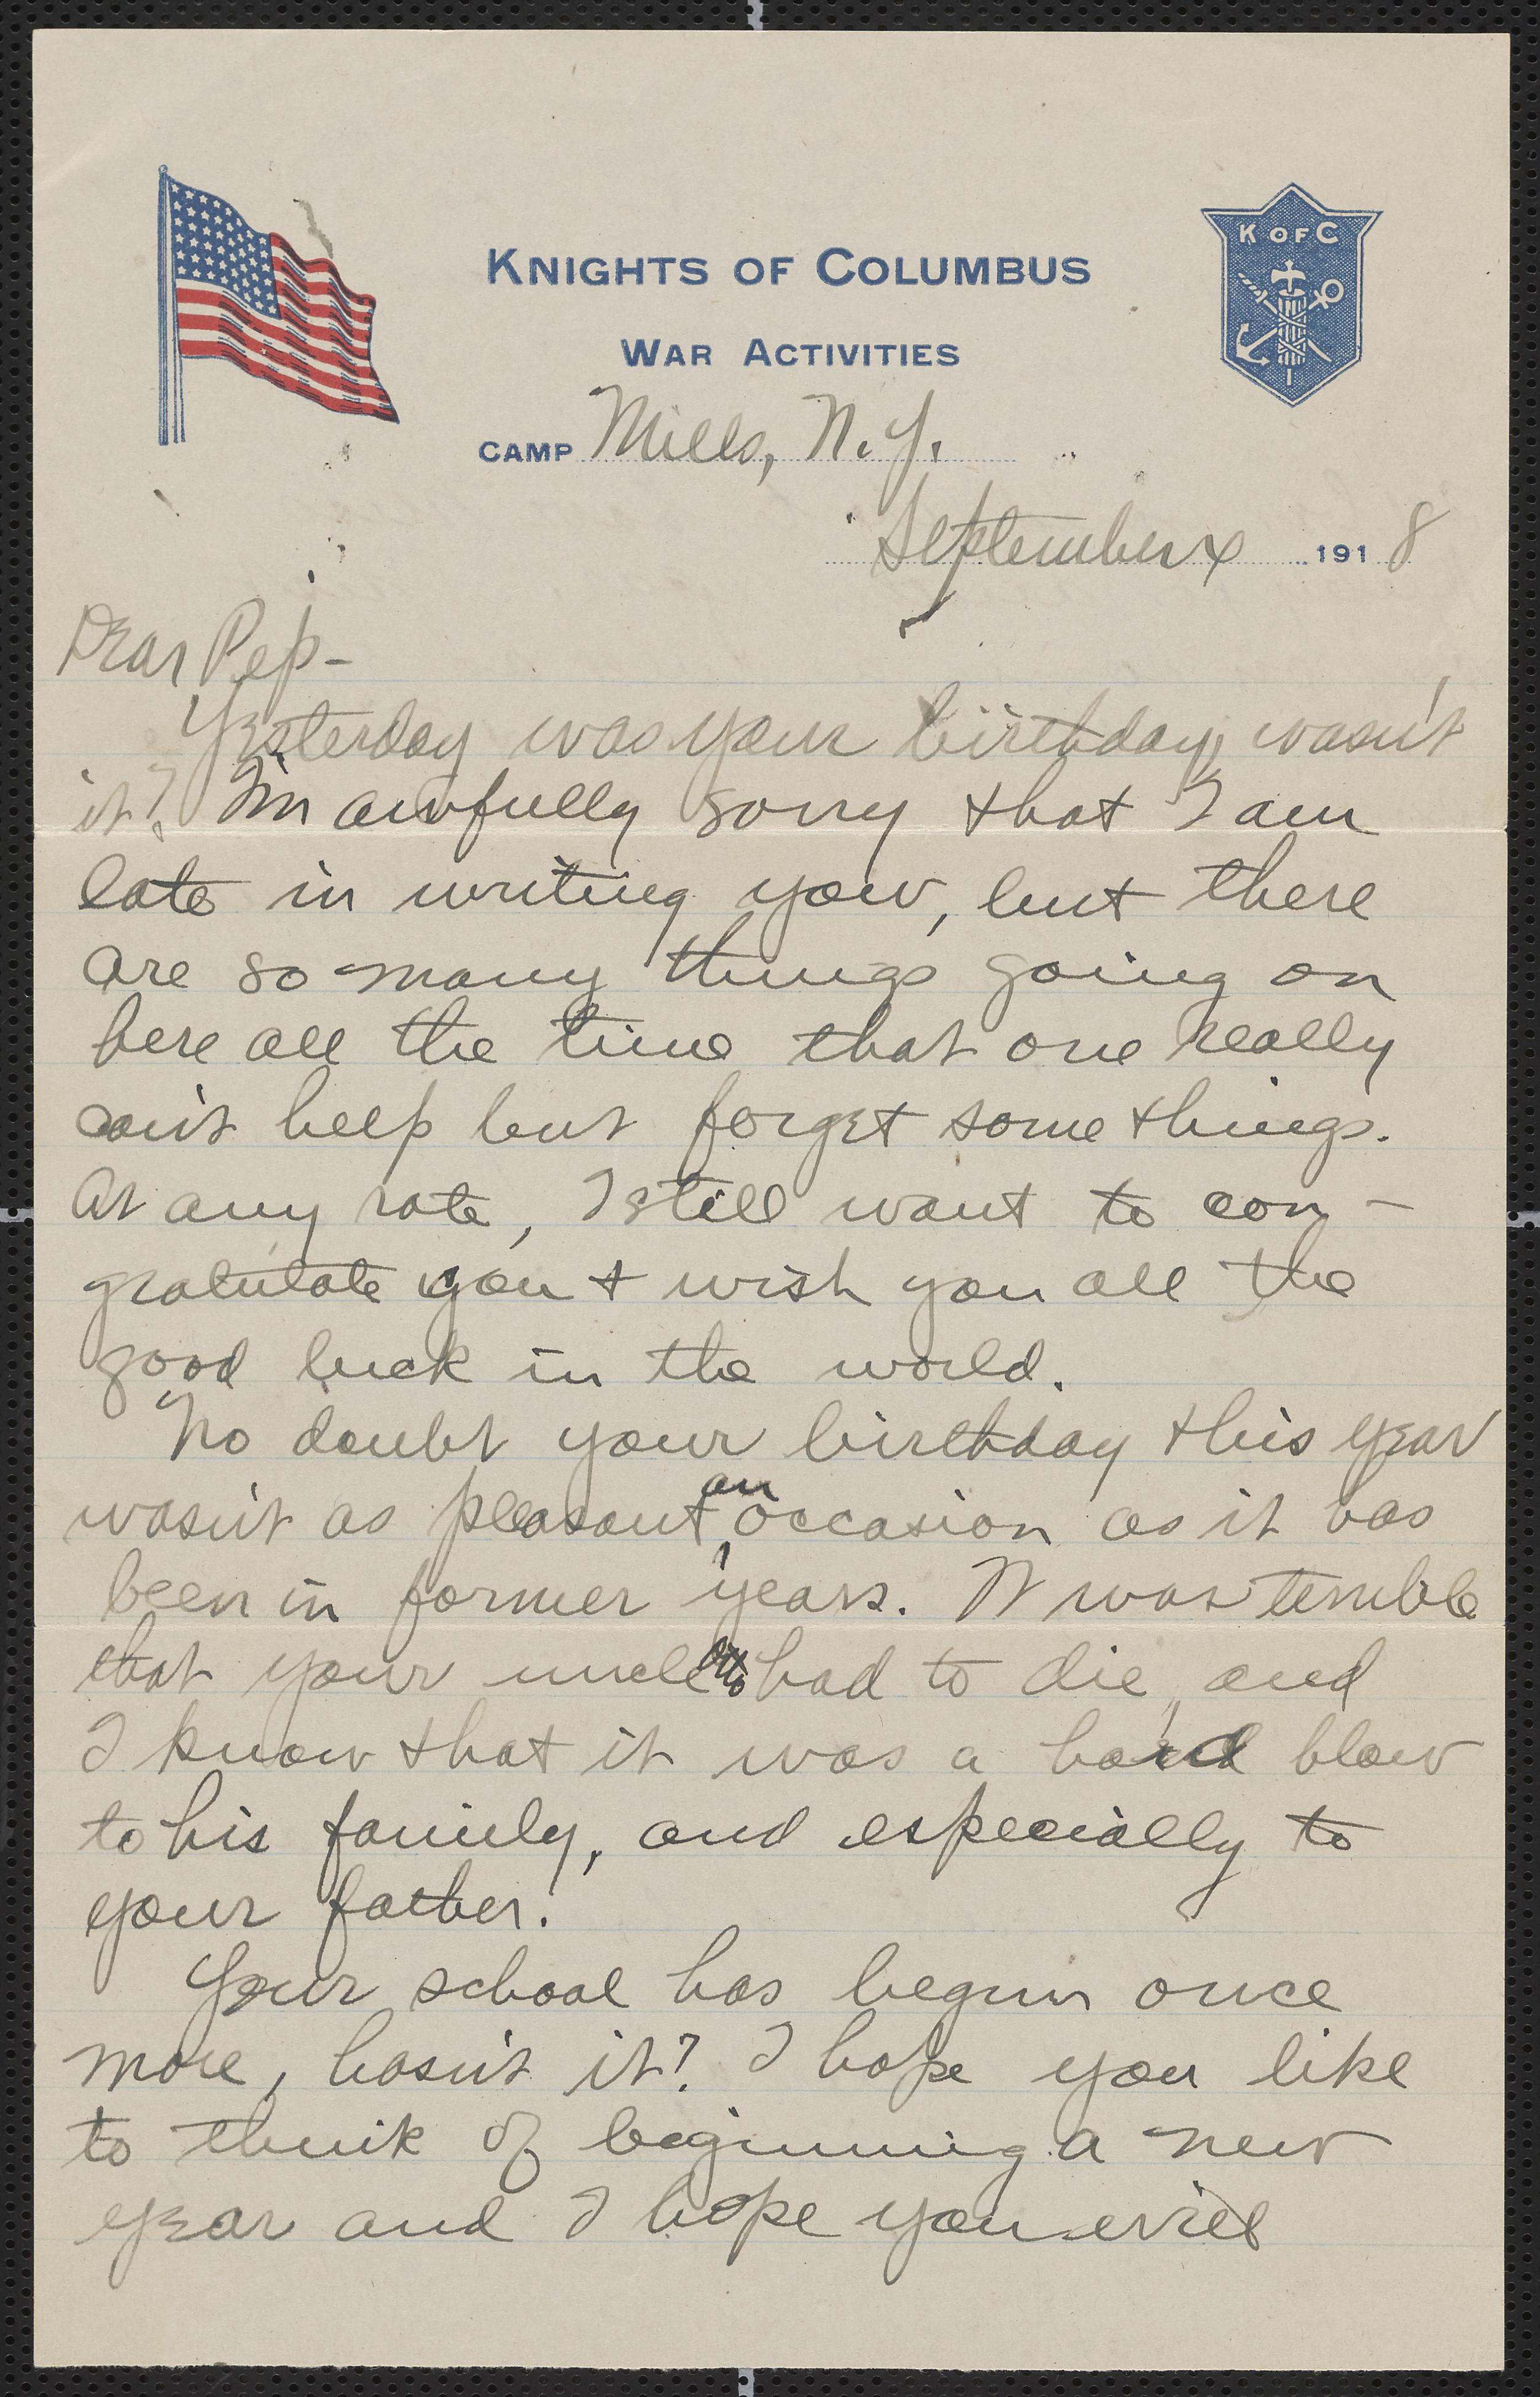 K OF C
KNIGHTS OF COLUMBUS
WAR ACTIVITIES
CAMP Mills, N.Y.
September 1918
Dear Pep-
Yesterday was your birthday, wasn't
it? I'm awfully sorry that I am
late in writing you, but there
are so many things going on
here all the time that one really
can't help but forget some things.
At any rate, I still want to con-
gratulate you & wish you all the
good luck in the world.
No doubt your birthday this year
wasn't as pleasant an occasion as it has
been in former years. It was terrible
that your uncle had to die, and
I know that it was a hard blow
to his family, and especially to
your father.
Your school has begun once
more, hasn't it? I hope you like
to think of beginning a new
year and I hope you will